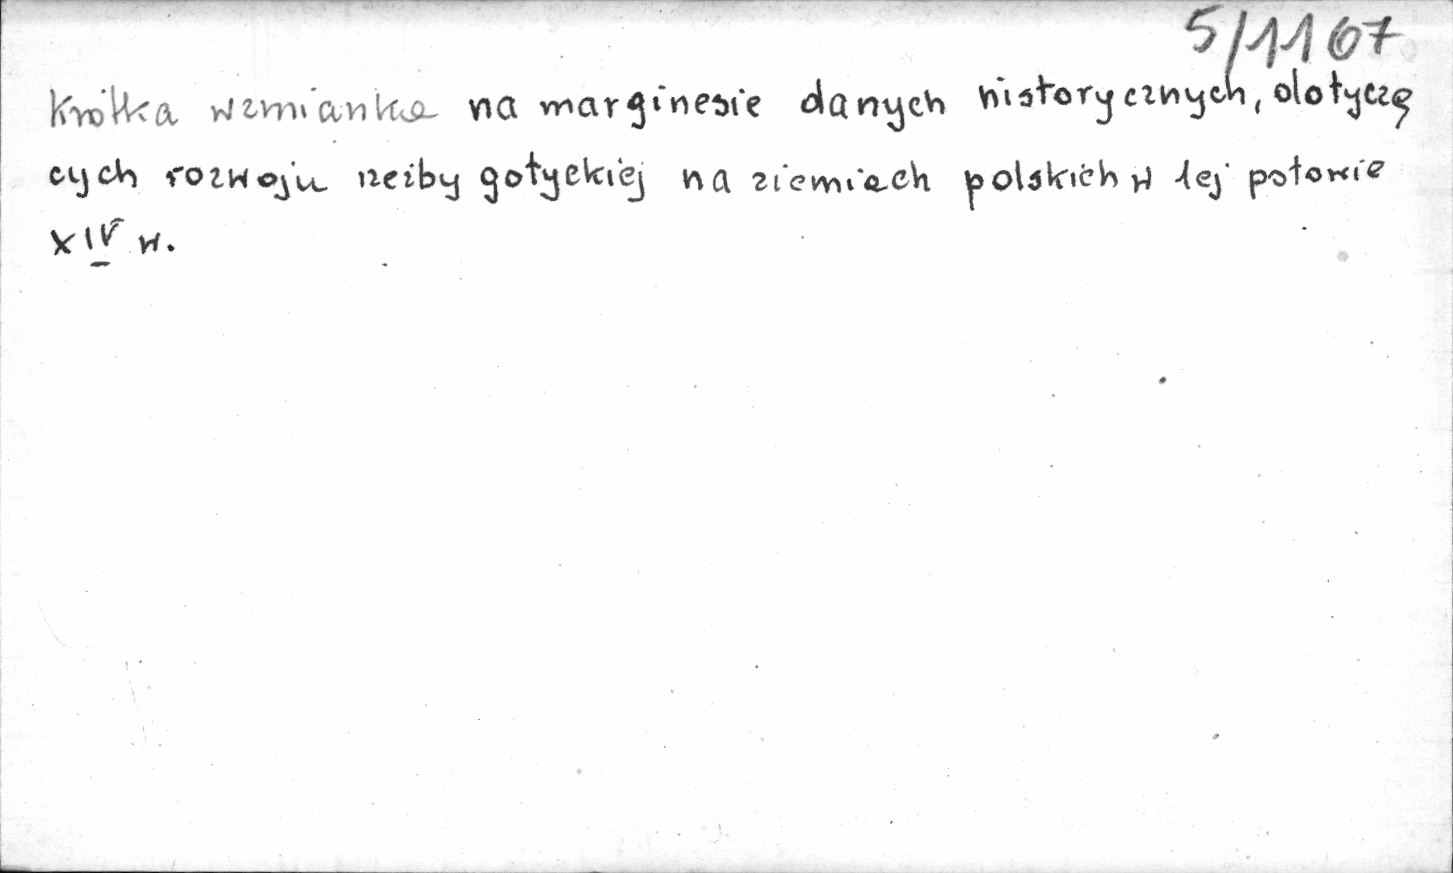 5/1167
Krótka wzmianka na marginesie danych historycznych, dotyczą
cych rozwoju rzeźby gotyckiej na ziemiach polskich w 1ej połowie
XIV w.